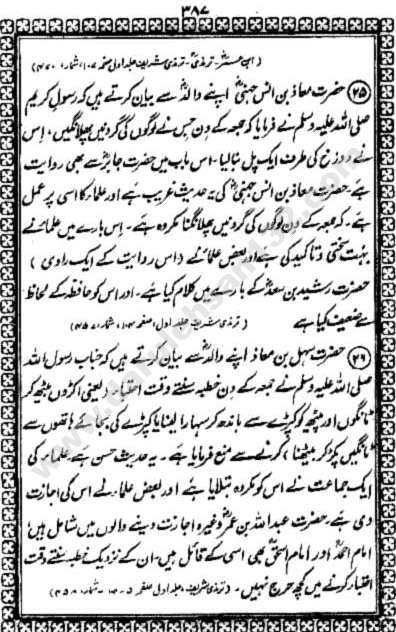 ۳۸۷
(ابن عساکر - ترمذی - ترمذی شریف جلد اول صفحہ ۱۰۷، شمار ۴۶۰)
(۲۵) حضرت معاذ بن انس جہنیؓ اپنے والدؓ سے بیان کرتے ہیں کہ رسول کریم
صلی اللہ علیہ وسلم نے فرمایا کہ جمعہ کے دن جس نے لوگوں کی گردنیں پھلانگیں، اس
نے دوزخ کی طرف ایک پل بنا لیا - اس باب میں حضرت جابرؓ سے بھی روایت
ہے - حضرت معاذ بن انس جہنیؓ کی یہ حدیث غریب ہے اور علماء کا اسی پر عمل
ہے - کہ جمعہ کے دن لوگوں کی گردنیں پھلانگنا مکروہ ہے - اس بارے میں علماء نے
بہت سختی و تاکید کی ہے اور بعض علماء نے (اس روایت کے ایک راوی)
حضرت رشید بن سعدؓ کے بارے میں کلام کیا ہے - اور اس کو حافظہ کے لحاظ
سے ضعیف کہا ہے (ترمذی شریف جلد اول، صفحہ ۱۰۴، شمار ۴۵۷)
(۲۶) حضرت سہل بن معاذ اپنے والدؓ سے بیان کرتے ہیں کہ جناب رسول اللہ
صلی اللہ علیہ وسلم نے جمعہ کے دن خطبہ سنتے وقت احتباء (یعنی اکڑوں بیٹھ کر
ٹانگوں اور پیٹھ کو کپڑے سے باندھ کر سہارا لینا یا کپڑے کی بجائے ہاتھوں سے
ٹانگیں پکڑ کر بیٹھنا) کرنے سے منع فرمایا ہے - یہ حدیث حسن ہے علماء کی
ایک جماعت نے اس کو مکروہ بتلایا ہے اور بعض علماء نے اس کی اجازت
دی ہے - حضرت عبداللہ بن عمرؓ وغیرہ اجازت دینے والوں میں شامل ہیں؛
امام احمدؒ اور امام اسحٰقؒ بھی اسی کے قائل ہیں - ان کے نزدیک خطبہ سنتے وقت
احتباء کرنے میں کچھ حرج نہیں - (ترمذی شریف، جلد اول صفحہ - شمار ۴۵۸)